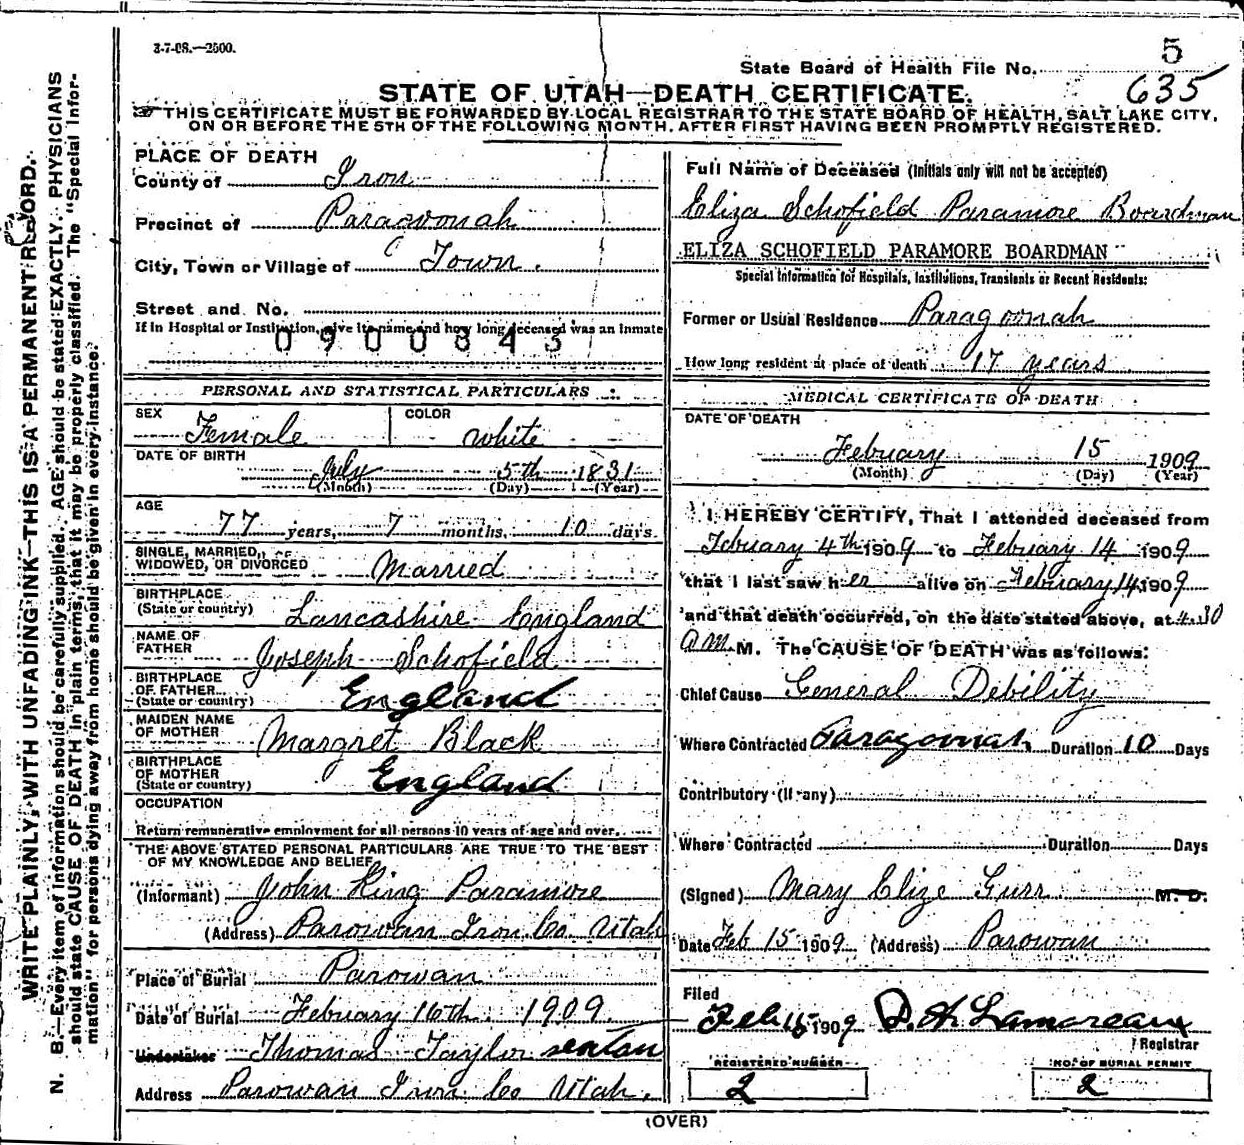 3-7-08.—2500.
5
State Board of Health File No.
635
STATE OF UTAH—DEATH CERTIFICATE.
THIS CERTIFICATE MUST BE FORWARDED BY LOCAL REGISTRAR TO THE STATE BOARD OF HEALTH, SALT LAKE CITY,
ON OR BEFORE THE 5TH OF THE FOLLOWING MONTH, AFTER FIRST HAVING BEEN PROMPTLY REGISTERED.
WRITE PLAINLY, WITH UNFADING INK—THIS IS A PERMANENT RECORD.
N. B.—Every item of information should be carefully supplied. AGE should be stated EXACTLY. PHYSICIANS
should state CAUSE OF DEATH in plain terms, that it may be properly classified. The "Special Infor-
mation" for persons dying away from home should be given in every instance.
PLACE OF DEATH
County of Iron
Precinct of Paragoonah
City, Town or Village of Town.
Street and No.
If in Hospital or Institution, give its name and how long deceased was an inmate
0900843
PERSONAL AND STATISTICAL PARTICULARS
SEX Female COLOR White
DATE OF BIRTH
July 5th 1831
(Month) (Day) (Year)
AGE
77 years, 7 months, 10 days.
SINGLE, MARRIED,
WIDOWED, OR DIVORCED Married
BIRTHPLACE
(State or country) Lancashire England
NAME OF
FATHER Joseph Schofield
BIRTHPLACE
OF FATHER
(State or country) England
MAIDEN NAME
OF MOTHER Margret Black
BIRTHPLACE
OF MOTHER
(State or country) England
OCCUPATION
Return remunerative employment for all persons 10 years of age and over.
THE ABOVE STATED PERSONAL PARTICULARS ARE TRUE TO THE BEST
OF MY KNOWLEDGE AND BELIEF.
(Informant) John King Paramore
(Address) Parowan Iron Co. Utah
Place of Burial Parowan
Date of Burial February 16th. 1909
Undertaker Thomas Taylor sexton
Address Parowan Iron Co Utah.
Full Name of Deceased (Initials only will not be accepted)
Eliza Schofield Paramore Boardman
ELIZA SCHOFIELD PARAMORE BOARDMAN
Special Information for Hospitals, Institutions, Transients or Recent Residents:
Former or Usual Residence Paragoonah
How long resident at place of death 17 years
MEDICAL CERTIFICATE OF DEATH
DATE OF DEATH
February 15 1909
(Month) (Day) (Year)
I HEREBY CERTIFY, That I attended deceased from
February 4th 1909 to February 14 1909
that I last saw her alive on February 14 1909
and that death occurred, on the date stated above, at 4.30
am. M. The CAUSE OF DEATH was as follows:
Chief Cause General Debility
Where Contracted Paragoonah Duration 10 Days
Contributory (If any)
Where Contracted Duration Days
(Signed) Mary Elize Gurr M. D.
Date Feb 15 1909 (Address) Parowan
Filed
Feb 1909 D. A. Lamoreaux
Registrar
REGISTERED NUMBER
2
NO. OF BURIAL PERMIT
2
(OVER)